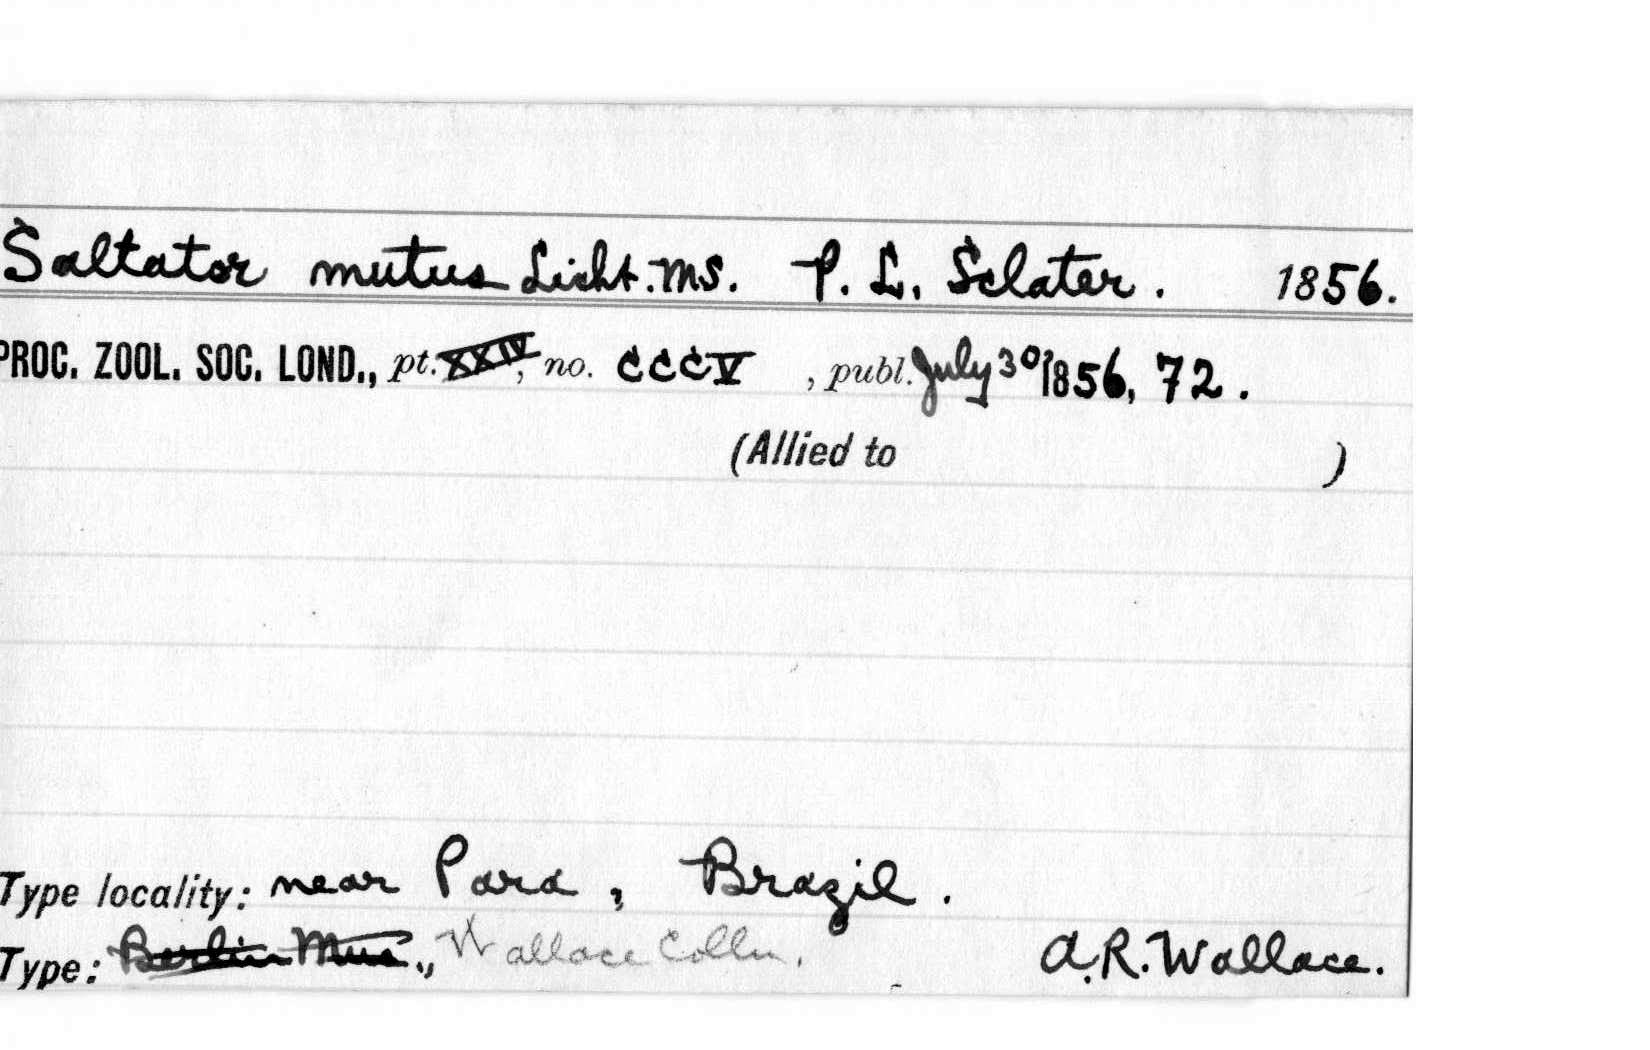 Saltator mutus Licht. MS. P. L. Sclater. 1856.
PROC. ZOOL. SOC. LOND., pt. XXIV, no. CCCV , publ. July 30 1856, 72.
(Allied to )
Type locality: near Para, Brazil.
Type: Berlin Mus., Wallace Colln. A.R. Wallace.